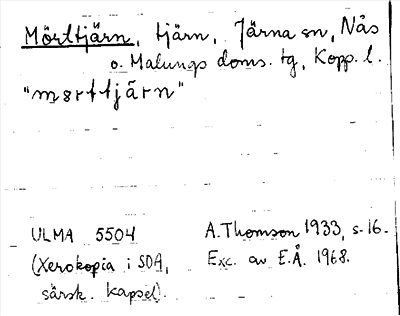 Mörttjärn, tjärn, Järna sn, Nås
o. Malungs doms. tg, Kopp. l.
"mørttjärn"
ULMA 5504 A. Thomson 1933, s. 16.
(Xerokopia i SOA, Exc. av E.Å. 1968.
särsk. kapsel).